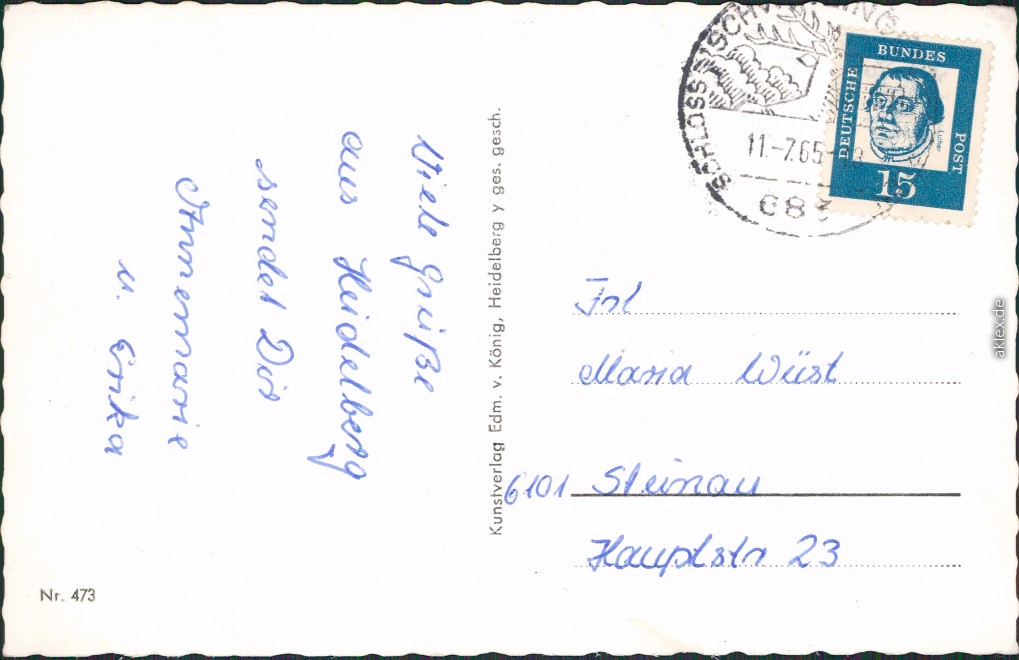 Viele Grüße
aus Heidelberg
sendet Dir
Annemarie
u. Erika
Nr. 473
Kunstverlag Edm. v. König, Heidelberg y ges. gesch.
SCHLOSS
11.-7.65
683
DEUTSCHE
BUNDES
POST
Luther
15
Frl
Maria Wüst
6101 Steinau
Hauptstr 23
aklex.de